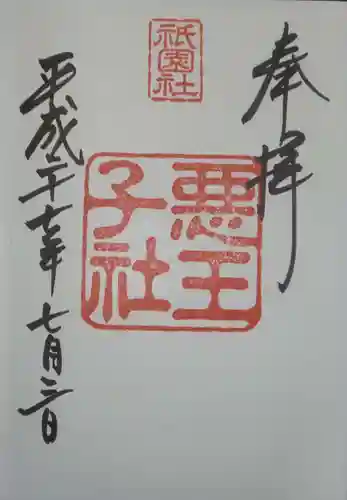 奉拝
祇園社
悪王
子社
平成二十七年七月三日